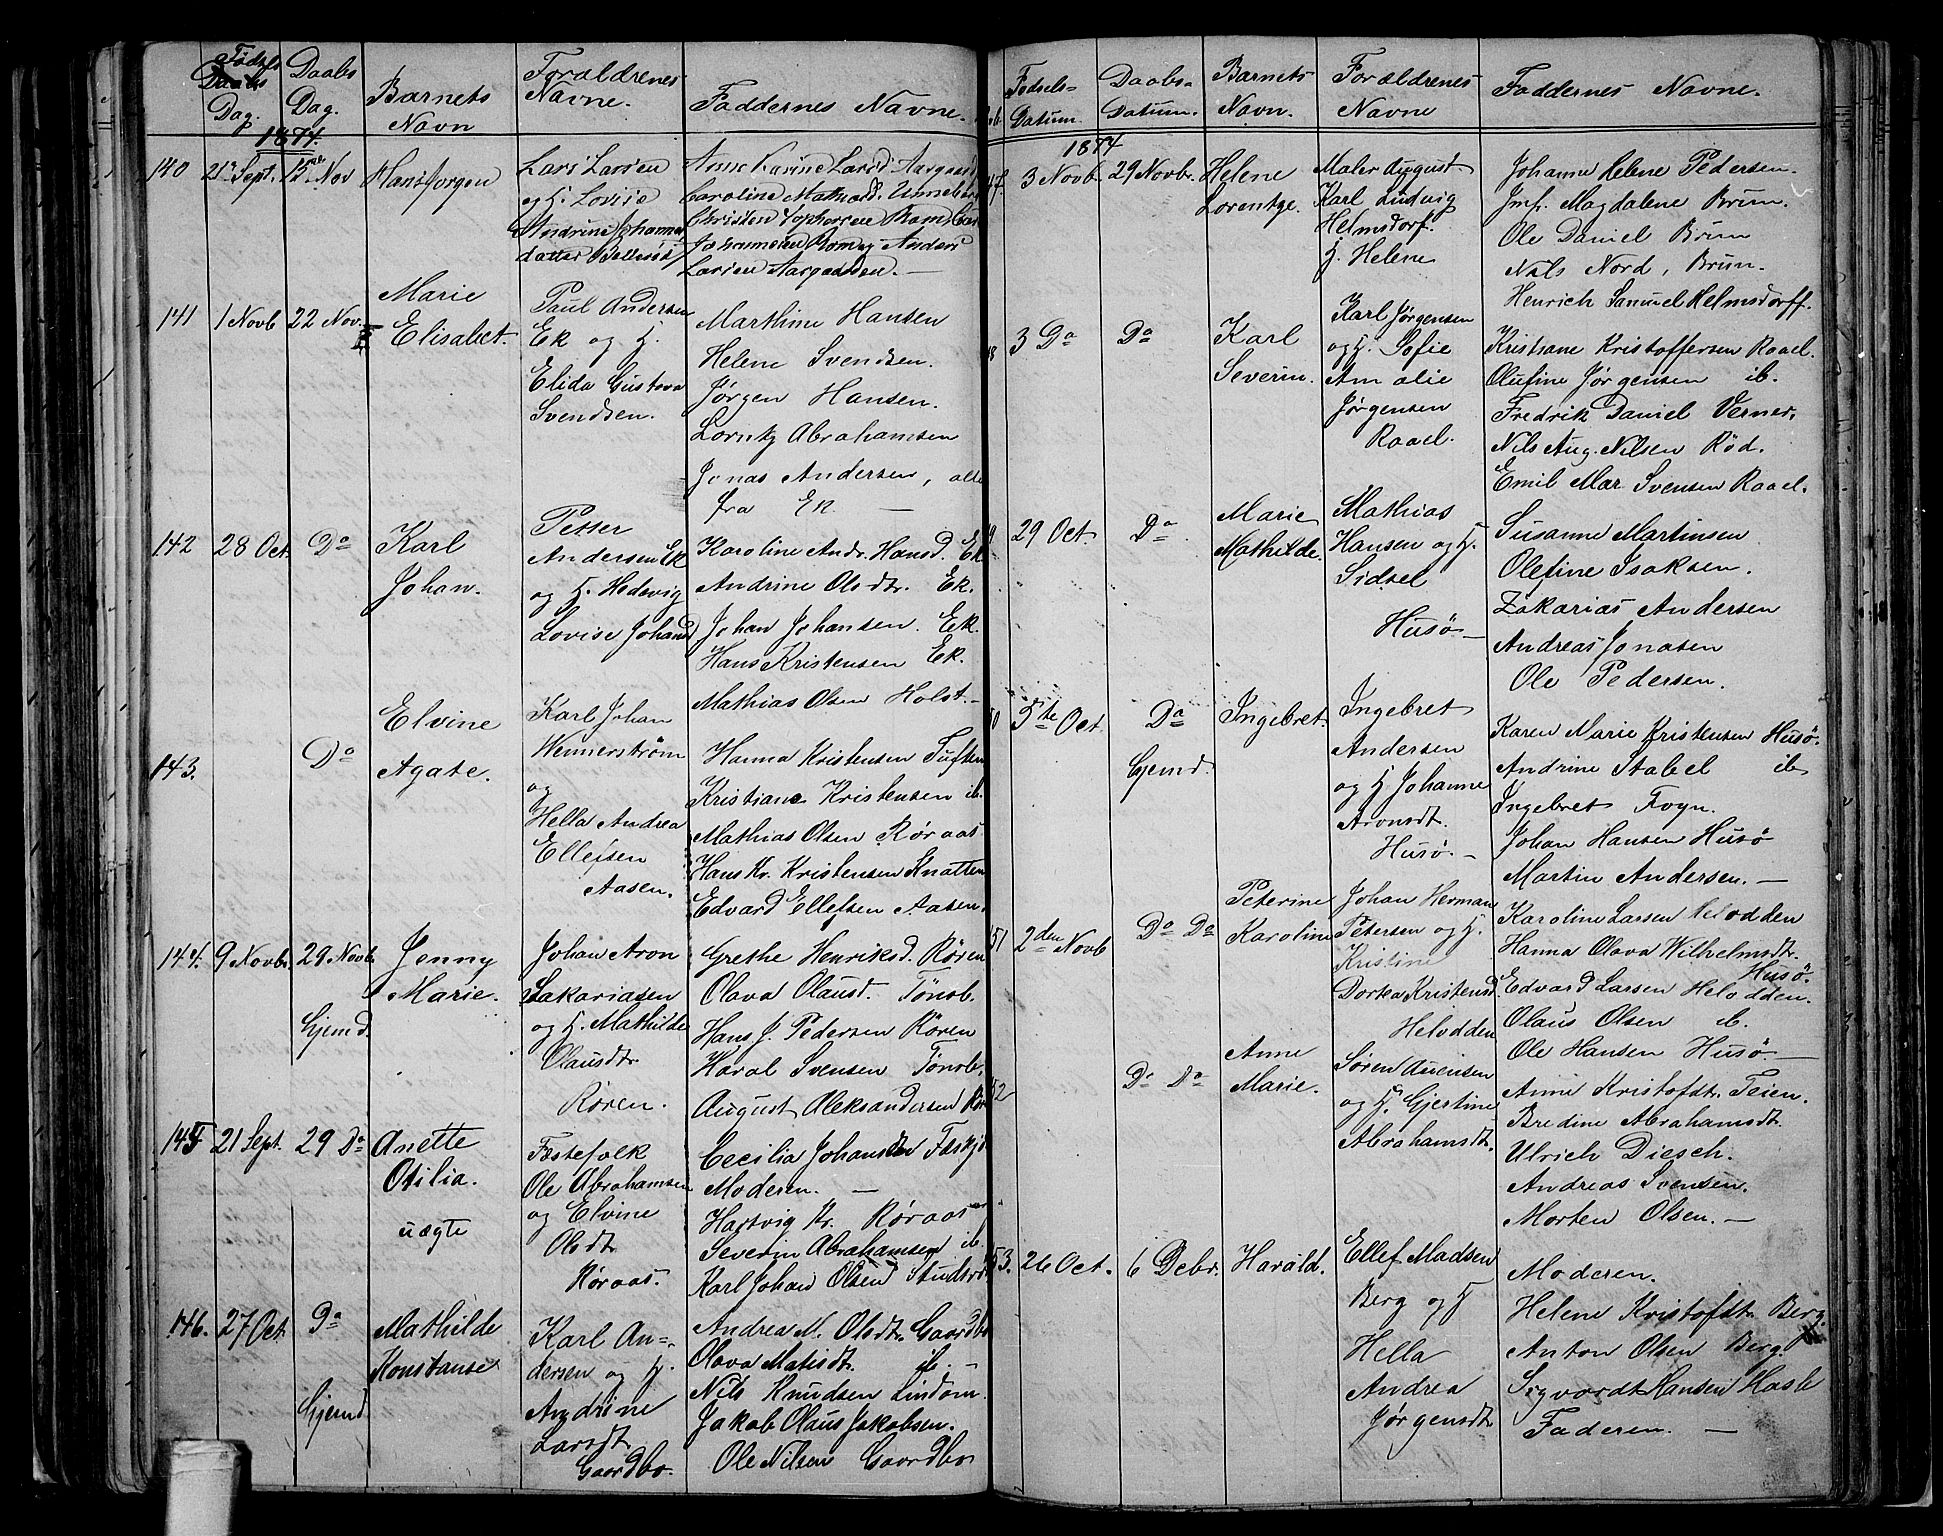 Fødsels Dag.
Daabs Dag.
Barnets Navn
Forældrenes Navne.
Faddernes Navne.
1874.
140 21 Sept. 15 Nov Hans Jorgen
Lars Larsen
og H. Lovise
Andrine Johannes
datter
Anne Karine Larsd.
Caroline
Christen
Johannesen Anders
Larsen
141 1 Novb 22 Nov. Marie
Elisabet.
Paul Andersen
Ek og H.
Elida Gustava
Svendsen.
Marthine Hansen
Helene Svendsen.
Jørgen Hansen.
Lorntz Abrahamsen
Jonas Andersen, alle
fra Ek —
142 28 Oct. Do Karl
Johan.
Petter
Andersen Ek
og H. Hedevig
Lovise Johansd
Karoline Andr. Hansd. Ek
Andrine Olsdtr. Ek.
Johan Johansen. Ek.
Hans Kristensen Ek.
Mathias Olsen Holst. —
143. Do Elvine
Agate.
Karl Johan
Wennerstrøm
og
Hella Andrea
Ellefsen
Aasen.
Hanna Kristensen Tuften
Kristiane Kristensen ib.
Mathias Olsen Røraas
Hans Kr. Kristensen Knatten
Edvard Ellefsen Aasen.
144. 9 Novb. 29 Novb. Jenny
Marie.
Gjemd.
Johan Aron
Sakariasen
og H. Mathilde
Olausdtr.
Røren.
Grethe Henriksd. Røren
Olava Olausd. Tönsb.
Hans J. Pedersen Røren
Haral Svensen Tönsb.
August Aleksandersen Rør
145 21 Sept. 29 Do Anette
Otilia.
uægte
Fæstefolk
Ole Abrahamsen
og Elvine
Olsdt.
Røraas.
Cecilia Johansdtr
Moderen. —
Hartvig Kr. Røraas
Severin Abrahamsen ib.
Karl Johan Olsen
146. 27 Oct. Do Mathilde
Konstanse
Gjemd.
Karl An-
dersen og H.
Andrine
Larsdt.
Gaardbo.
Andrea N. Olsdtr. Gaardbo
Olava Matisdt. ib. —
Nils Knudsen Lindom.
Jakob Olaus Jakobsen.
Ole Nilsen Gaardbo
Fødsels-
Datum.
Daabs-
Datum.
Barnets
Navn.
Forældrenes
Navne
Faddernes Navne.
1874
47. 3 Novb. 29 Novbr. Helene
Lorentze.
Maler August
Karl Ludvig
Helmsdorf.
H. Helene
Johanne Helene Pedersen
Jmf. Magdalene Brun.
Ole Daniel Brun
Nils Nord, Brun.
Henrich Samuel Helmsdorff.
48 3 Do Do Karl
Severin.
Karl Jørgensen
og H. Sofie
Amalie
Jørgensen
Raael.
Kristiane Kristoffersen Raael.
Olufine Jørgensen ib.
Fredrik Daniel Verner.
Nils Aug. Nilsen Rød.
Emil Mar Svensen Raael.
49 29 Oct. Do Marie
Mathilde.
Mathias
Hansen og H.
Sidsel
Husø —
Susanne Martinsen
Olefine Isaksen.
Zakarias Andersen
Andreas Jonasen
Ole Pedersen.
50 5te Oct. Do
Gjemd.
Ingebret
Ingebret
Andersen
og H Johanne
Aronsdt.
Husø. —
Karen Marie Kristensen Husø.
Andrine Stabel ib
Ingebret Foyn.
Johan Hansen Husø
Martin Andersen. —
51 2den Novb Do Do Peterine
Karoline
Johan Herman
Petersen og H.
Kristine
Dorka Kristensd.
Helodden
Karoline Larsen Helodden
Hanna Olava Wilhelmsdt.
Husø.
Edvard Larsen Helodden.
Olaus Olsen ib.
Ole Hansen Husø —
52 Do Do Anne
Marie.
Søren Auensen
og H. Gjertine
Abrahamsdt.
Anne Kristofdtr. Teien.
Bredine Abrahamsdt.
Ulrich Diesch.
Andreas Svensen.
Morten Olsen. —
53. 26 Oct. 6 Debr. Harald.
Ellef Madsen
Berg og H
Hella
Andrea
Jørgensdt.
Moderen.
Helene Kristofdt. Berg.
Anton Olsen Berg.
Sigvardt Hansen Hasle
Faderen. —